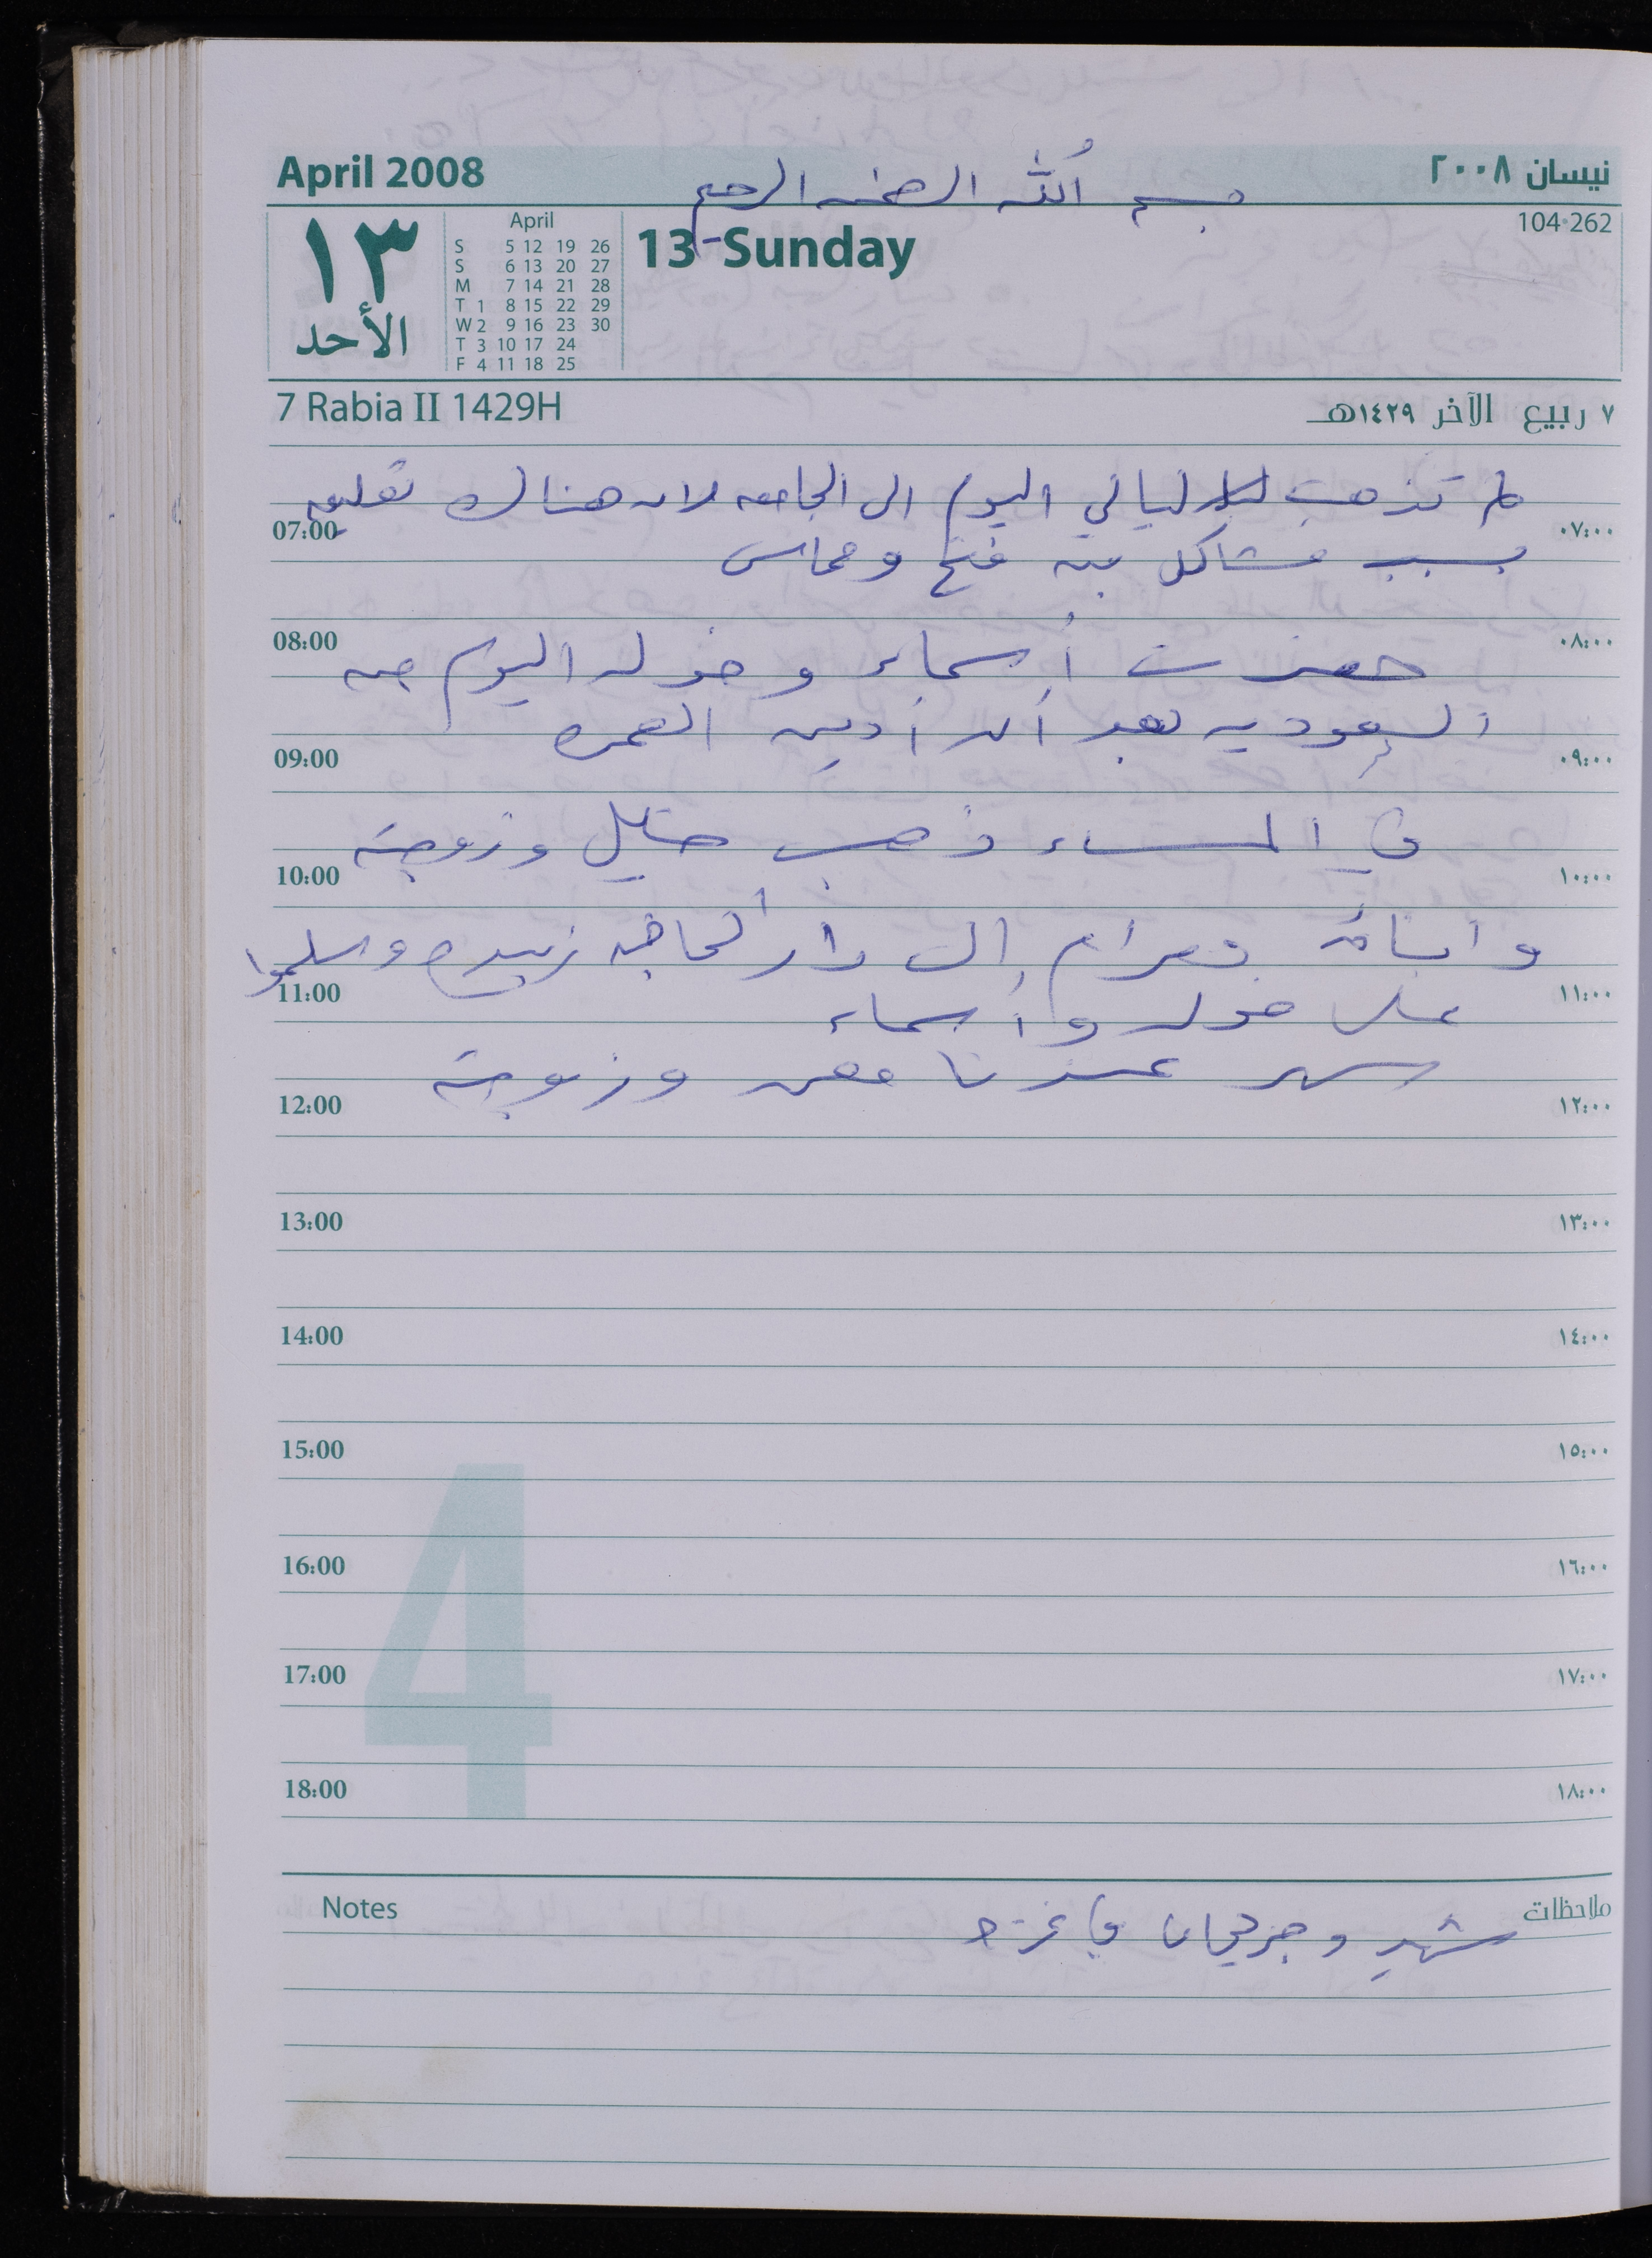 April 2008
نيسان ٢٠٠٨
بسم الله الرحمن الرحيم
104-262
١٣
الأحد
April
S 5 12 19 26
S 6 13 20 27
M 7 14 21 28
T 1 8 15 22 29
W 2 9 16 23 30
T 3 10 17 24
F 4 11 18 25
13 Sunday
7 Rabia II 1429H
٧ ربيع الآخر ١٤٢٩هـ
لم تذهب ليالي اليوم الى الجامعه لان هناك تعليق
07:00 ٠٧:٠٠
بسبب مشاكل بين فتح وحماس
08:00 ٠٨:٠٠
حضرت أسماء وخوله اليوم من
السعوديه بعد أن أدين العمره
09:00 ٠٩:٠٠
في المساء ذهب وزوجته
10:00 ١٠:٠٠
وابنائه ومرام إلى دار الحاجه زبيده وسلموا
11:00 ١١:٠٠
على خوله وأسماء
سهر عندنا معن وزوجته
12:00 ١٢:٠٠
13:00 ١٣:٠٠
14:00 ١٤:٠٠
15:00 ١٥:٠٠
16:00 ١٦:٠٠
17:00 ١٧:٠٠
18:00 ١٨:٠٠
4
Notes ملاحظات
شهيد وجريحان في غزه